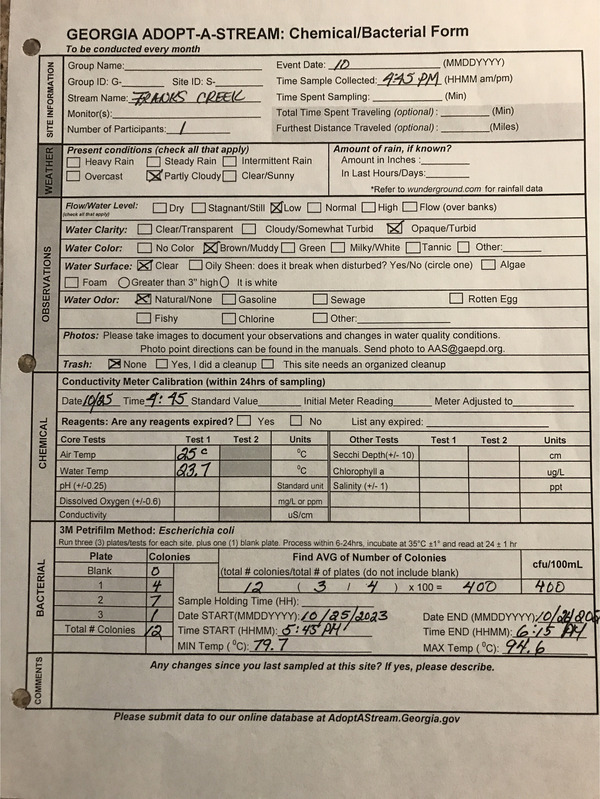 GEORGIA ADOPT-A-STREAM: Chemical/Bacterial Form
To be conducted every month
SITE INFORMATION
Group Name: Event Date: 10 (MMDDYYYY)
Group ID: G- Site ID: S- Time Sample Collected: 4:45 PM (HHMM am/pm)
Stream Name: FRANKS CREEK Time Spent Sampling: (Min)
Monitor(s): Total Time Spent Traveling (optional): (Min)
Number of Participants: 1 Furthest Distance Traveled (optional): (Miles)
WEATHER
Present conditions (check all that apply) Amount of rain, if known?
Heavy Rain Steady Rain Intermittent Rain Amount in Inches :
Overcast Partly Cloudy Clear/Sunny In Last Hours/Days:
*Refer to wunderground.com for rainfall data
OBSERVATIONS
Flow/Water Level: Dry Stagnant/Still Low Normal High Flow (over banks)
(check all that apply)
Water Clarity: Clear/Transparent Cloudy/Somewhat Turbid Opaque/Turbid
Water Color: No Color Brown/Muddy Green Milky/White Tannic Other:
Water Surface: Clear Oily Sheen: does it break when disturbed? Yes/No (circle one) Algae
Foam Greater than 3" high It is white
Water Odor: Natural/None Gasoline Sewage Rotten Egg
Fishy Chlorine Other:
Photos: Please take images to document your observations and changes in water quality conditions.
Photo point directions can be found in the manuals. Send photo to AAS@gaepd.org.
Trash: None Yes, I did a cleanup This site needs an organized cleanup
CHEMICAL
Conductivity Meter Calibration (within 24hrs of sampling)
Date 10/25 Time 4:45 Standard Value Initial Meter Reading Meter Adjusted to
Reagents: Are any reagents expired? Yes No List any expired:
Core Tests Test 1 Test 2 Units Other Tests Test 1 Test 2 Units
Air Temp 25 c °C Secchi Depth(+/- 10) cm
Water Temp 23.7 °C Chlorophyll a ug/L
pH (+/-0.25) Standard unit Salinity (+/- 1) ppt
Dissolved Oxygen (+/-0.6) mg/L or ppm
Conductivity uS/cm
BACTERIAL
3M Petrifilm Method: Escherichia coli
Run three (3) plates/tests for each site, plus one (1) blank plate. Process within 6-24hrs, incubate at 35°C ±1° and read at 24 ± 1 hr
Plate Colonies Find AVG of Number of Colonies cfu/100mL
Blank 0 (total # colonies/total # of plates (do not include blank)
1 4 12 ( 3 / 4 ) x 100 = 400 400
2 7 Sample Holding Time (HH):
3 1 Date START(MMDDYYYY): 10/25/2023 Date END (MMDDYYYY):
Total # Colonies 12 Time START (HHMM): 5:45 PM Time END (HHMM): 6:15 PM
MIN Temp (°C): 79.7 MAX Temp (°C): 94.6
COMMENTS
Any changes since you last sampled at this site? If yes, please describe.
Please submit data to our online database at AdoptAStream.Georgia.gov